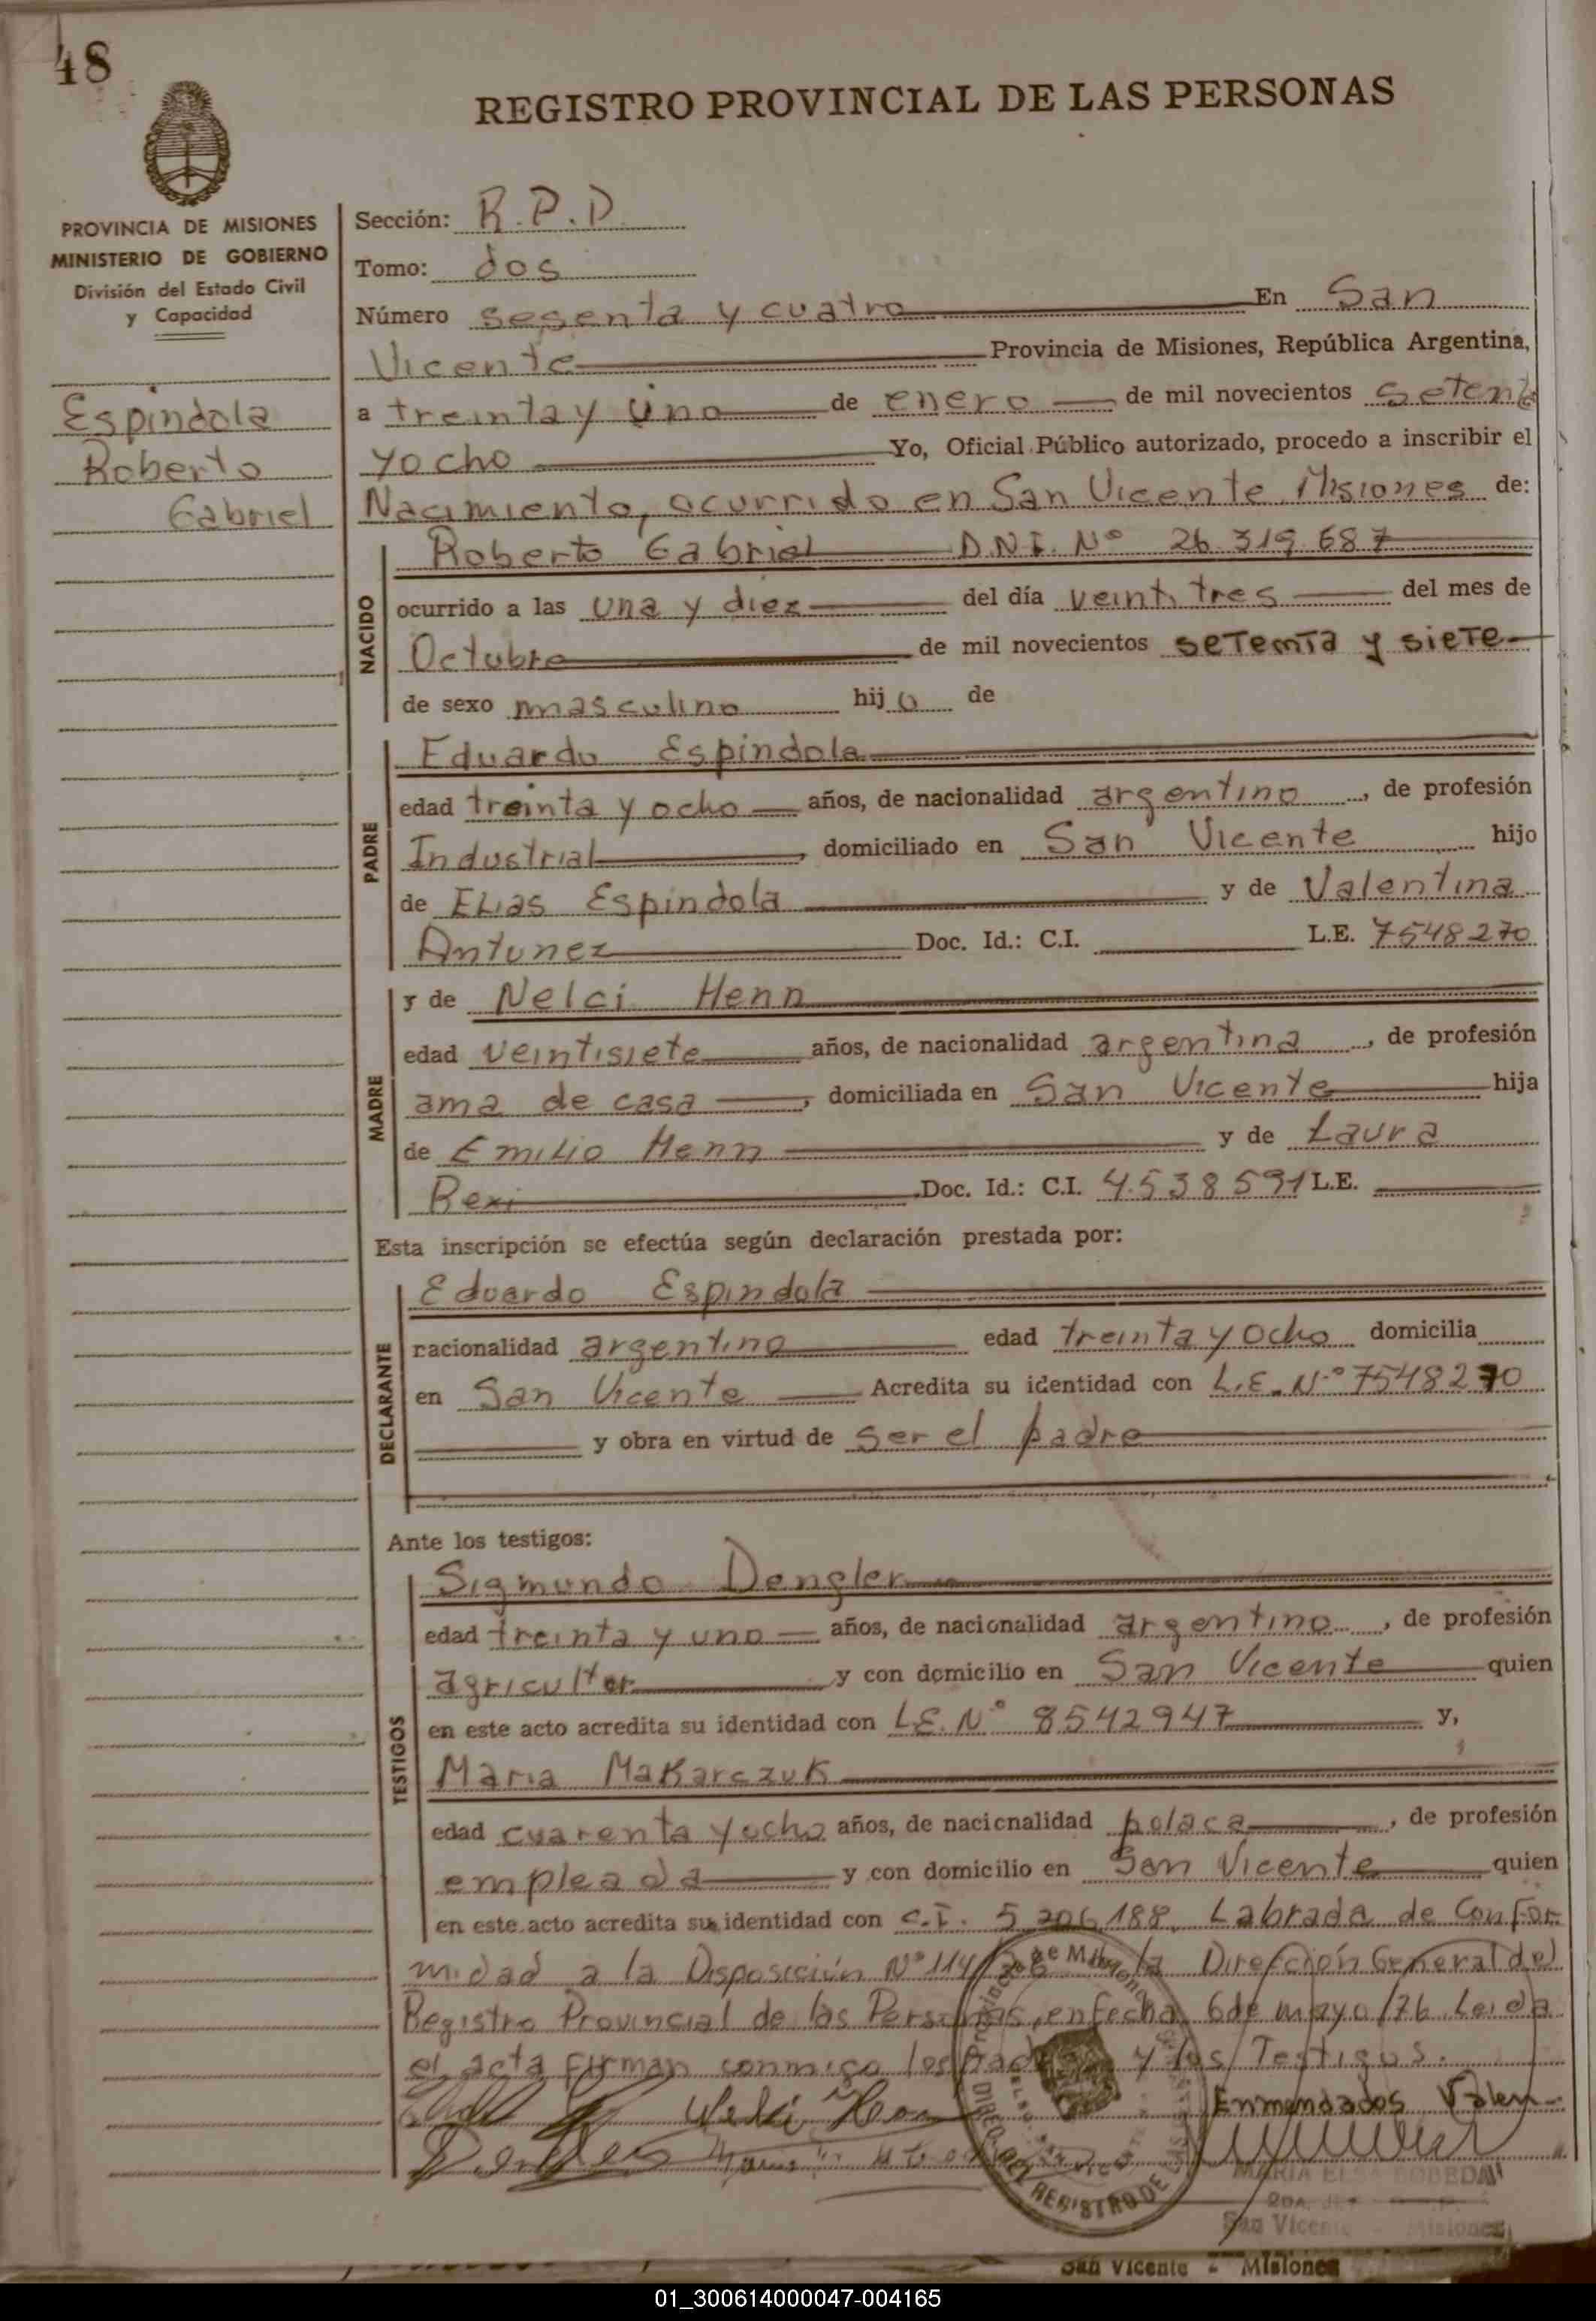 48
REGISTRO PROVINCIAL DE LAS PERSONAS
PROVINCIA DE MISIONES
MINISTERIO DE GOBIERNO
División del Estado Civil
y Capacidad
Espindola
Roberto
Gabriel
Sección: R.P.D
Tomo: dos
Número sesenta y cuatro En San
Vicente Provincia de Misiones, República Argentina,
a treinta y uno de enero de mil novecientos setenta
y ocho Yo, Oficial Público autorizado, procedo a inscribir el
Nacimiento, ocurrido en San Vicente Misiones de:
NACIDO
Roberto Gabriel D.N.I. Nº 26.319.687
ocurrido a las una y diez del día veintitres del mes de
Octubre de mil novecientos setenta y siete
de sexo masculino hijo de
PADRE
Eduardo Espindola
edad treinta y ocho años, de nacionalidad argentino, de profesión
Industrial, domiciliado en San Vicente hijo
de Elias Espindola y de Valentina
Antunez Doc. Id.: C.I. L.E. 7548270
MADRE
y de Nelci Henn
edad veintisiete años, de nacionalidad argentina, de profesión
ama de casa, domiciliada en San Vicente hija
de Emilio Henn y de Laura
Rexi Doc. Id.: C.I. 4.538591 L.E.
Esta inscripción se efectúa según declaración prestada por:
DECLARANTE
Eduardo Espindola
nacionalidad argentino edad treinta y ocho domicilia
en San Vicente Acredita su identidad con L.E. Nº 7548270
y obra en virtud de ser el padre
Ante los testigos:
TESTIGOS
Sigmundo Dengler
edad treinta y uno años, de nacionalidad argentino, de profesión
agricultor y con domicilio en San Vicente quien
en este acto acredita su identidad con L.E. Nº 8542947 y,
Maria Makarczuk
edad cuarenta y ocho años, de nacionalidad polaca, de profesión
empleada y con domicilio en San Vicente quien
en este acto acredita su identidad con C.I. 5.206.188. Labrada de Confor
midad a la Disposición Nº 114/76 la Dirección General del
Registro Provincial de las Personas, en fecha 6 de mayo/76. Leida
el acta firman conmigo los padres y los Testigos.
Nelci Henn Enmendados Valen
San Vicente Misiones
San Vicente - Misiones
01_300614000047-004165